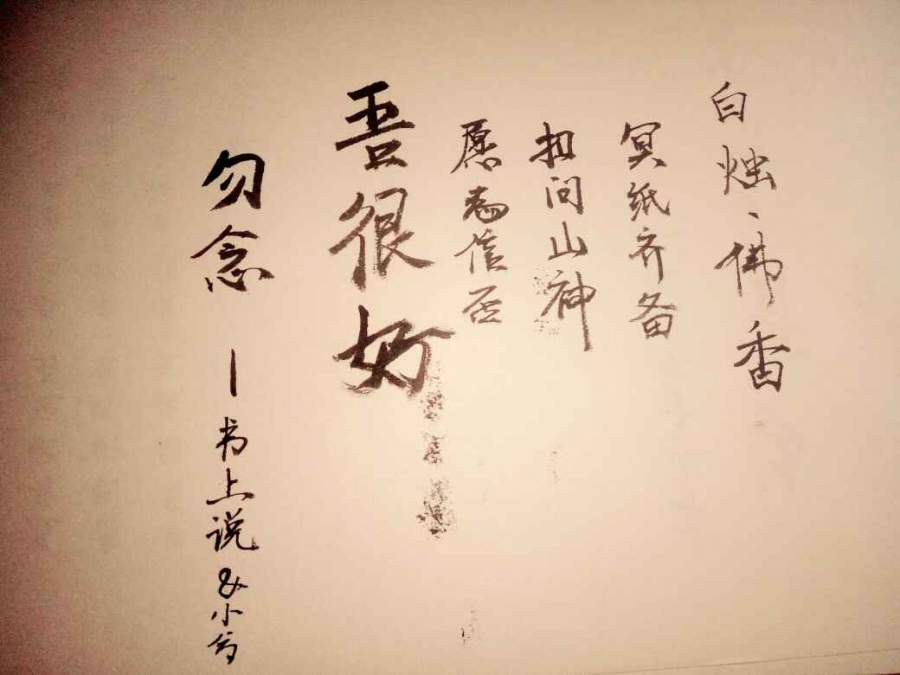 白烛、佛香
冥纸齐备
扣问山神
愿为信否
吾很好
勿念
—书上说&小